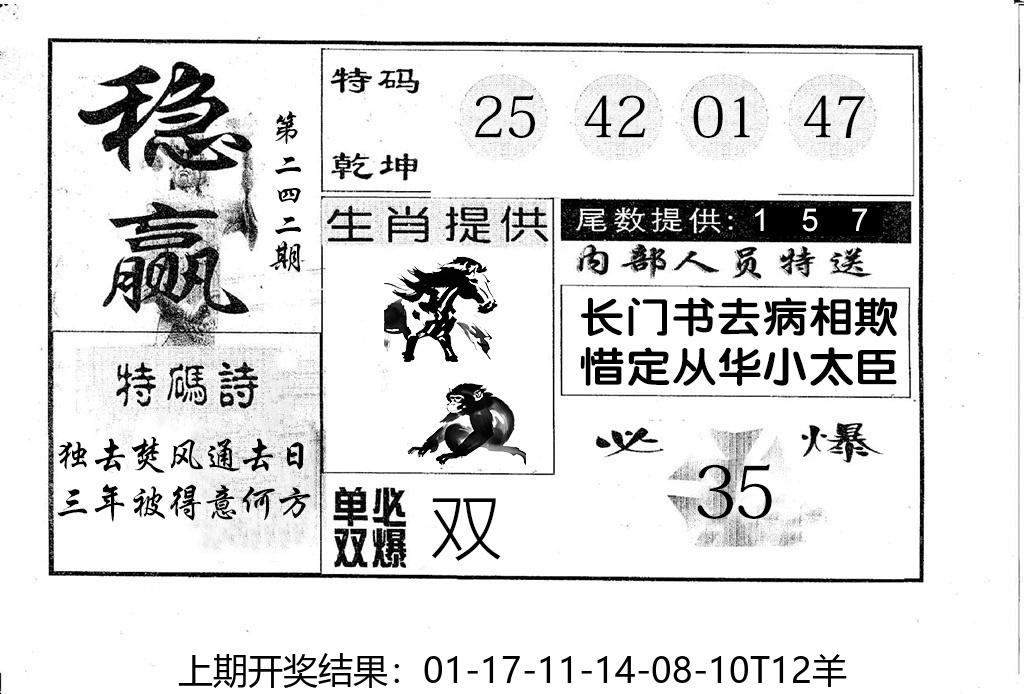 稳赢
第二四二期
特码
乾坤
25 42 01 47
生肖提供
尾数提供: 1 5 7
内部人员特送
长门书去病相欺
惜定从华小太臣
特碼詩
独去焚风通去日
三年被得意何方
单双必爆
双
必爆
35
上期开奖结果：01-17-11-14-08-10T12羊